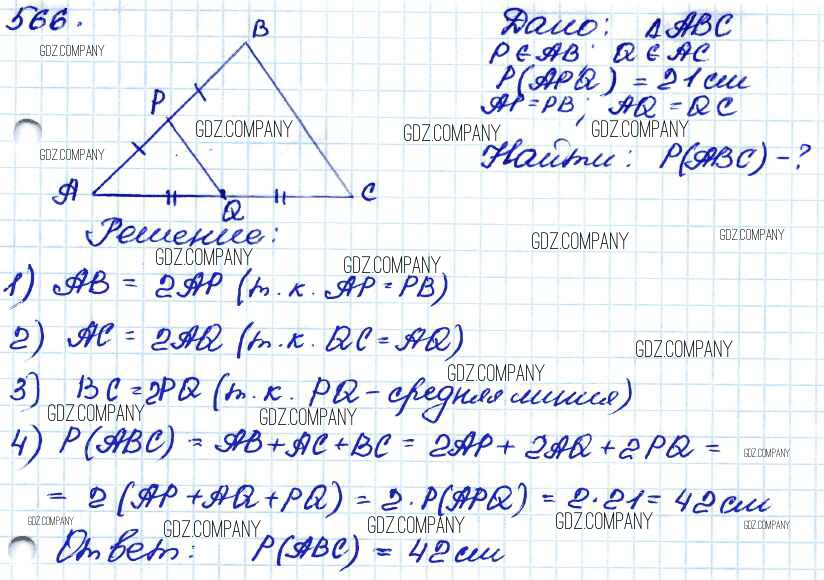 566.
GDZ.COMPANY
B
P
GDZ.COMPANY
GDZ.COMPANY
A
Q
C
Дано: ΔABC
P ∈ AB; Q ∈ AC
P(APQ) = 21 см
AP = PB; AQ = QC
GDZ.COMPANY
GDZ.COMPANY
Найти: P(ABC) - ?
Решение:
GDZ.COMPANY
GDZ.COMPANY
GDZ.COMPANY
GDZ.COMPANY
1) AB = 2AP (т.к. AP = PB)
2) AC = 2AQ (т.к. QC = AQ)
GDZ.COMPANY
GDZ.COMPANY
3) BC = 2PQ (т.к. PQ - средняя линия)
GDZ.COMPANY
GDZ.COMPANY
4) P(ABC) = AB + AC + BC = 2AP + 2AQ + 2PQ =
GDZ.COMPANY
= 2 (AP + AQ + PQ) = 2 · P(APQ) = 2 · 21 = 42 см
GDZ.COMPANY
GDZ.COMPANY
GDZ.COMPANY
GDZ.COMPANY
GDZ.COMPANY
Ответ: P(ABC) = 42 см